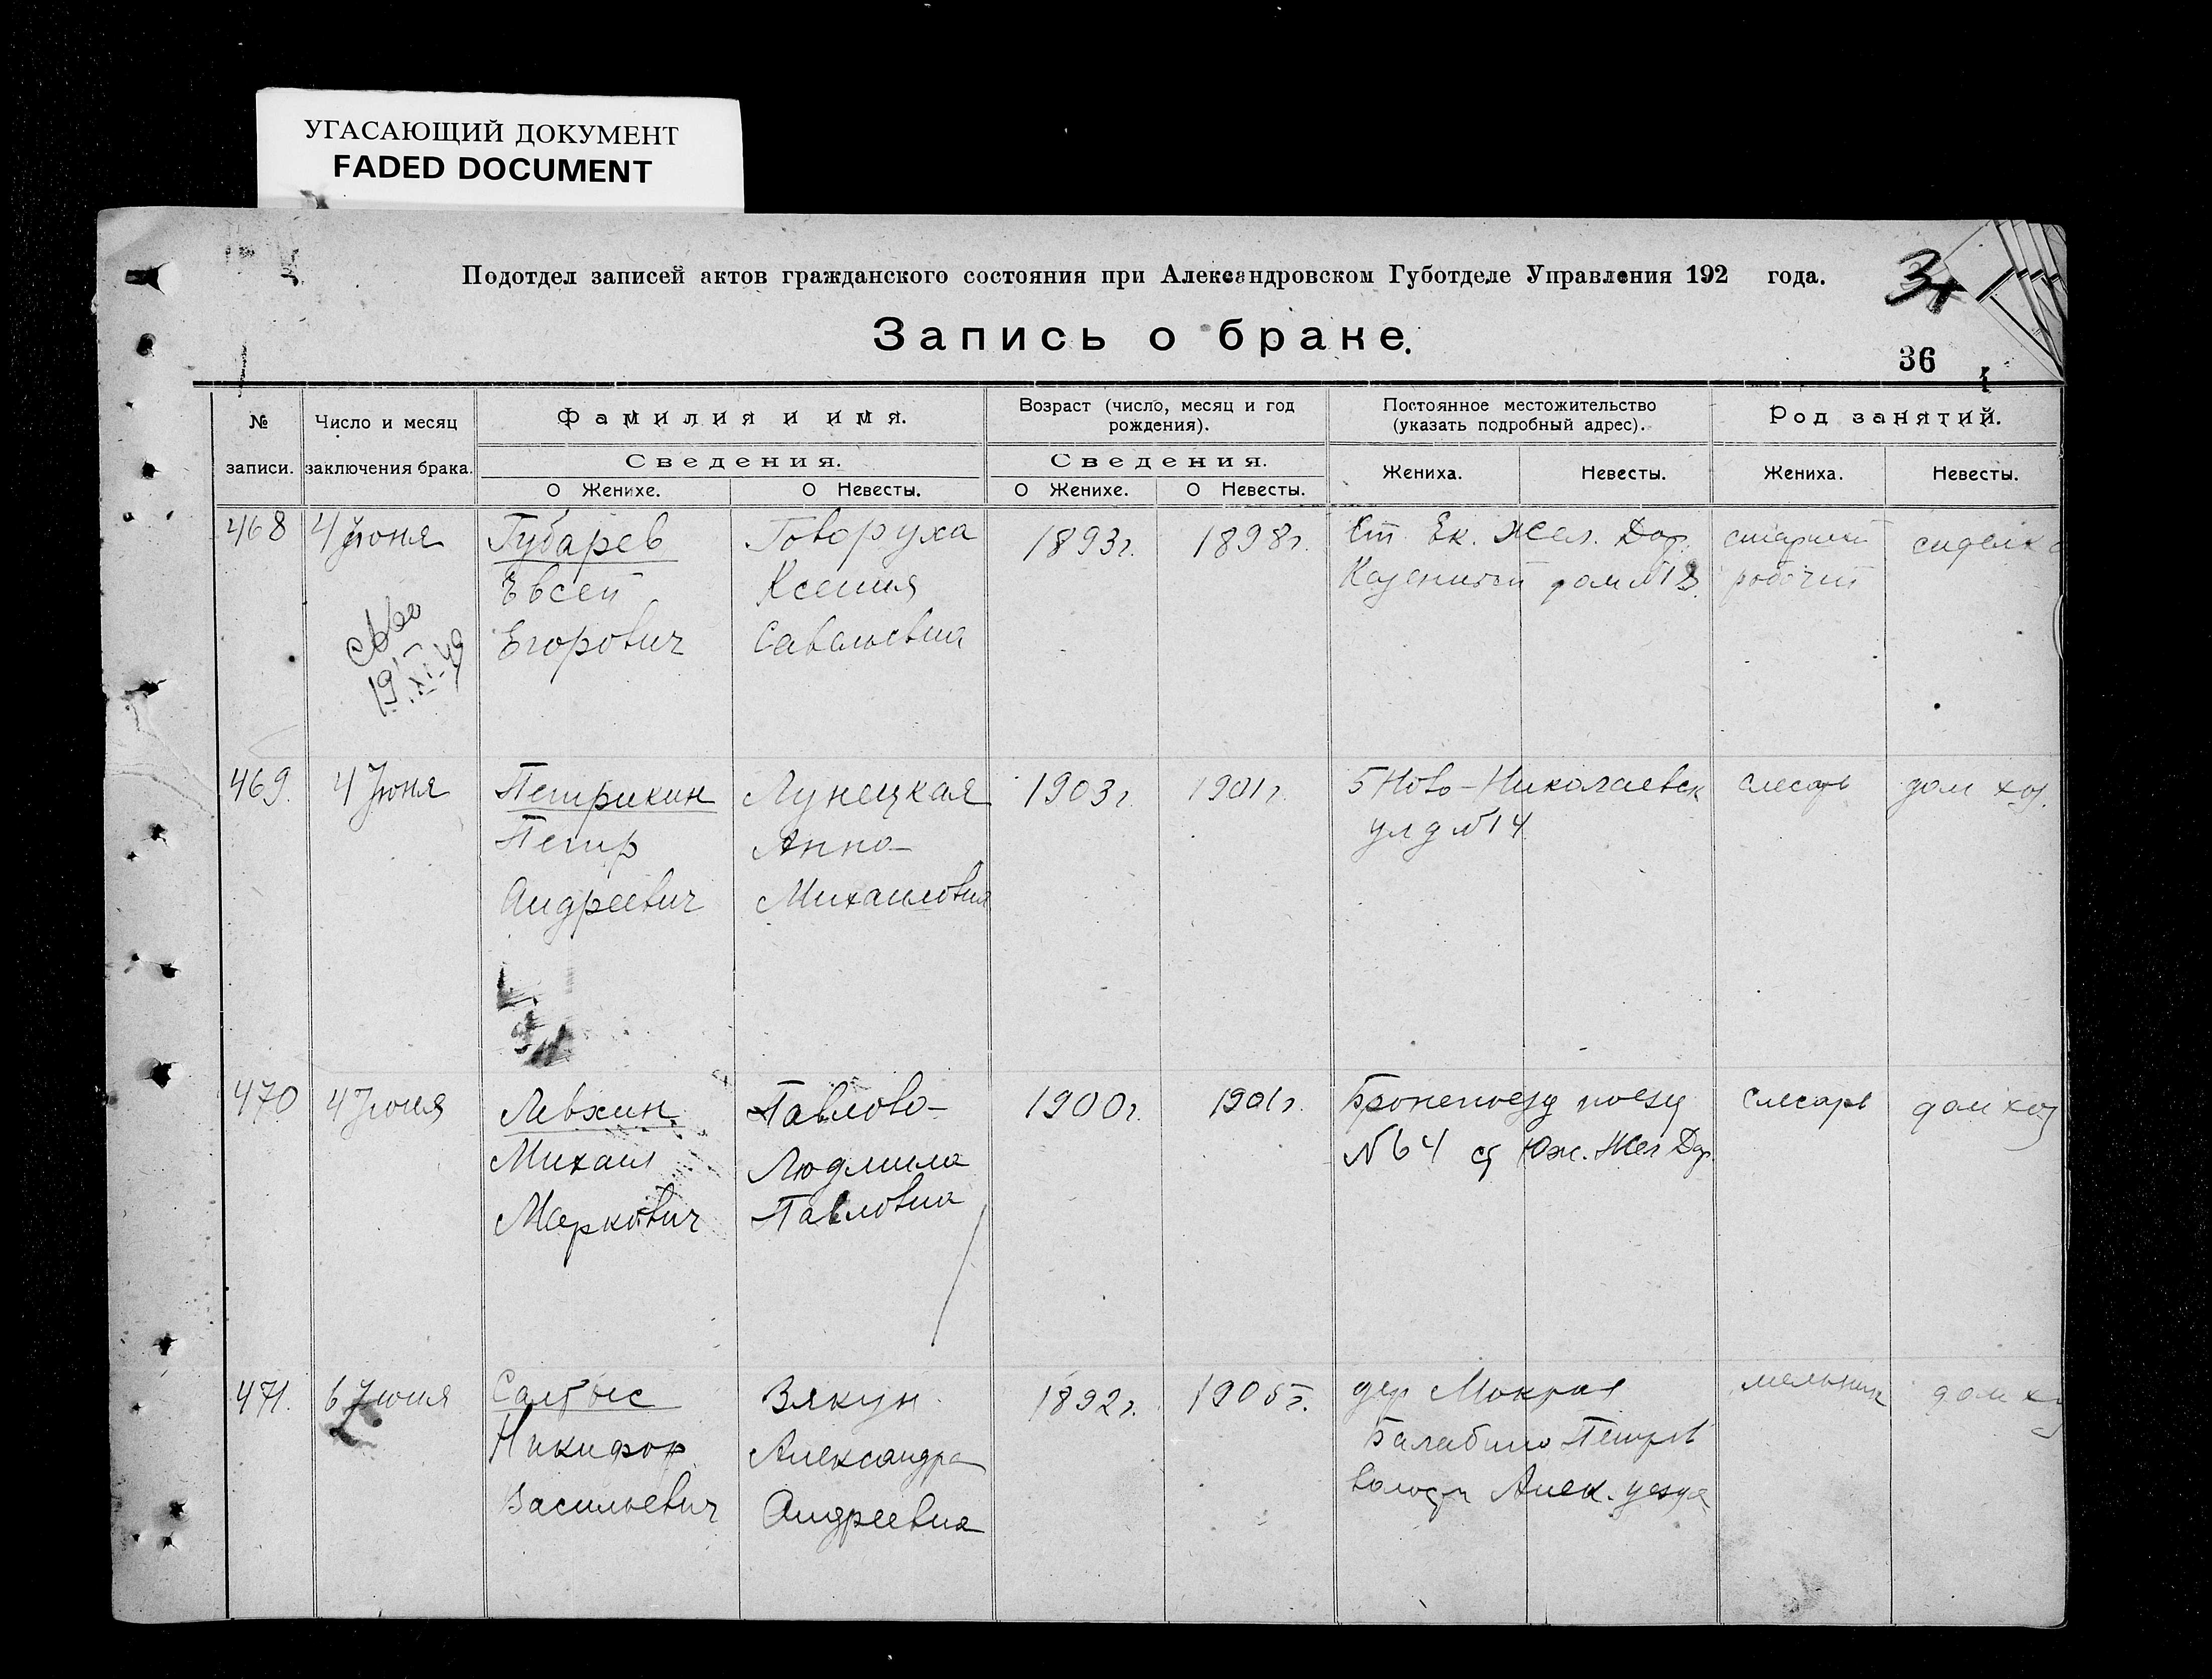 УГАСАЮЩИЙ ДОКУМЕНТ
FADED DOCUMENT
Подотдел записей актов гражданского состояния при Александровском Губотделе Управления 192 года.
Запись о браке.
36
№ записи.
Число и месяц заключения брака.
Фамилия и имя.
Сведения.
О Женихе.
О Невесты.
Возраст (число, месяц и год рождения).
Сведения.
О Женихе.
О Невесты.
Постоянное местожительство (указать подробный адрес).
Жениха.
Невесты.
Род занятий.
Жениха.
Невесты.
468
4 Июня
19/XI-49
Губарев
Евсей
Егорович
Говоруха
Ксения
Савельевна
1893г.
1898г.
Ст. Ек. Жел. Дор.
Казенный дом №13.
старший
рабочий
сиделка
469.
4 Июня
Петрикин
Петр
Андреевич
Лунецкая
Анна
Михаиловна
1903г.
1901г.
5 Ново-Николаевск
ул д №14
слесарь
дом хоз.
470
4 Июня
Левхин
Михаил
Маркович
Павлова
Людмила
Павловна
1900г.
1901г.
Бронепоезд поезд
№64 ст Юж. Жел Дор.
слесарь
дом хоз
471.
6 Июня
Никифор
Васильевич
Вякун
Александра
Андреевна
1892г.
1905г.
дер Мокрая
Балабино Петров
волости Алек. уезда
мельник
дом хоз